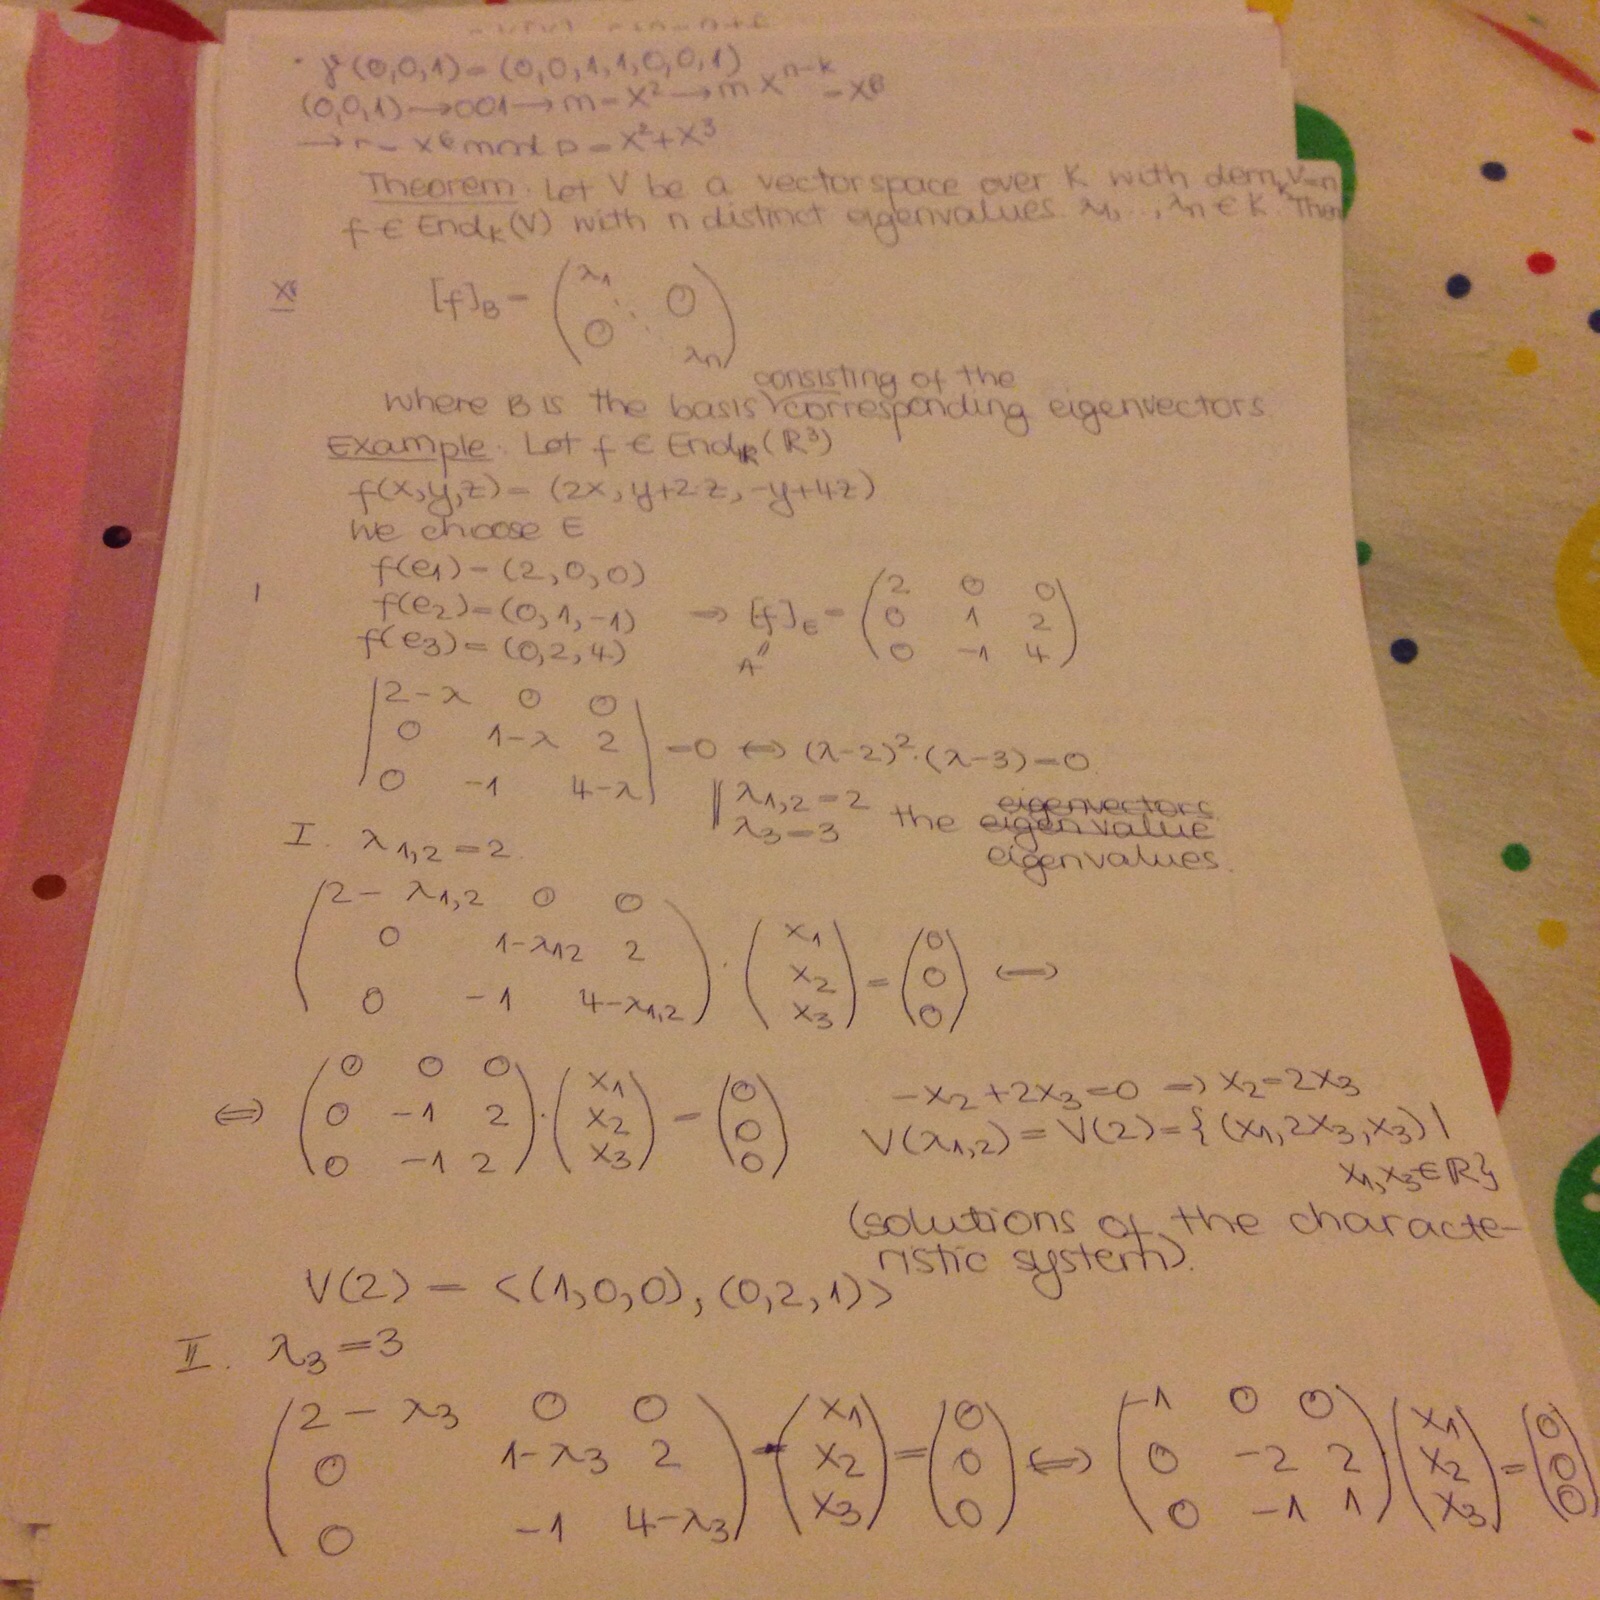 · γ(0,0,1)=(0,0,1,1,0,0,1)
(0,0,1)→001→m=x²→m x^{n-k} = x⁶
→r= x6 mod p = x²+x³
Theorem. Let V be a vectorspace over K with dem_K V=n
f ∈ End_K(V) with n distinct eigenvalues. λ1,..,λn ∈ K. Then
[f]_B = (λ1 ⋱ 0 0 λn)
consisting of the
where B is the basis corresponding eigenvectors.
Example. Let f ∈ End_ℝ(ℝ³)
f(x,y,z)= (2x, y+2z, -y+4z)
We choose E
f(e1)=(2,0,0)
f(e2)=(0,1,-1) ⇒ [f]_E = (2 0 0 / 0 1 2 / 0 -1 4)
f(e3)=(0,2,4) A"
|2-λ 0 0 / 0 1-λ 2 / 0 -1 4-λ| =0 ⇔ (λ-2)²·(λ-3)=0
λ1,2=2 eigenvectors
λ3=3 the eigen value
eigenvalues.
I. λ1,2=2.
(2-λ1,2 0 0 / 0 1-λ12 2 / 0 -1 4-λ1,2) · (x1 / x2 / x3) = (0 / 0 / 0) ⇔
⇔ (0 0 0 / 0 -1 2 / 0 -1 2) · (x1 / x2 / x3) = (0 / 0 / 0)
-x2+2x3=0 ⇒ x2=2x3
V(λ1,2)=V(2)={(x1,2x3,x3)|
x1,x3∈ℝ}
(solutions of the characte-
ristic system).
V(2)= <(1,0,0), (0,2,1)>
II. λ3=3
(2-λ3 0 0 / 0 1-λ3 2 / 0 -1 4-λ3) · (x1 / x2 / x3) = (0 / 0 / 0) ⇔ (-1 0 0 / 0 -2 2 / 0 -1 1) (x1 / x2 / x3) = (0 / 0 / 0)